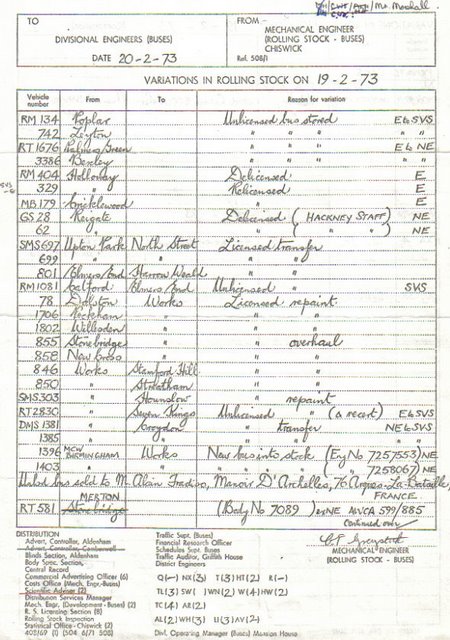 Mr Marshall
TO
FROM -
DIVISIONAL ENGINEERS (BUSES)
MECHANICAL ENGINEER
(ROLLING STOCK - BUSES)
CHISWICK
DATE 20-2-73
Ref. 508/1
VARIATIONS IN ROLLING STOCK ON 19-2-73
Vehicle number From To Reason for variation
RM 134 Poplar Unlicensed bus stored E to SVS
742 Leyton " " " " "
RT 1676 Palmers Green " " " E to NE
3386 Bexley " " "
RM 404 Holloway Delicensed E
329 " Relicensed E
MB 179 Cricklewood " E
GS 28 Reigate Delicensed (HACKNEY STAFF) NE
62 " " ( " " ) NE
SMS 697 Upton Park North Street Licensed transfer
699 " " " "
801 Elmers End Harrow Weald " "
RM 1081 Catford Elmers End Unlicensed " SVS
78 Dalston Works Licensed repaint
1706 Peckham " " "
1802 Willesden " " "
855 Stonebridge " " overhaul
858 New Cross " " "
846 Works Stamford Hill " "
850 " Streatham " "
SMS 303 " Hounslow " repaint
RT 2830 " Seven Kings Unlicensed " (a recert) E to SVS
DMS 1381 " Croydon " transfer NE to SVS
1385 " " " " "
1396 MCW BIRMINGHAM Works New bus into stock (Eng No 7257553) NE
1403 " " " " " ( " 7258067) NE
bus sold to M. Alain Manoir D'Archelles, 76 Arques-La-Bataille,
FRANCE
MERTON
RT 581 Stonebridge (Body No 7089) ex NE AWCA 599/885
Continued over
DISTRIBUTION
Advert. Controller, Aldenham
Advert. Controller, Camberwell
Blinds Section, Aldenham
Body Spec. Section,
Central Record
Commercial Advertising Officer (6)
Costs Office (Mech. Engr.-Buses)
Scientific Adviser (2)
Distribution Services Manager
Mech. Engr. (Development - Buses) (2)
R. S. Licensing Section (8)
Rolling Stock Inspection
Statistical Office - Chiswick (2)
403/69 (I) (504 6/71 508)
Traffic Supt. (Buses)
Financial Research Officer
Schedules Supt. Buses
Traffic Auditor, Griffith House
District Engineers
Q(-) NX(3) T(3) HT(2) R(-)
TL(3) SW( ) WN(2) W(4) HW(2)
TC(4) AR(2)
AL(2) WH(3) H(3) AV(2)
Divl. Operating Manager (Buses) Mansion House
MECHANICAL ENGINEER
(ROLLING STOCK - BUSES)